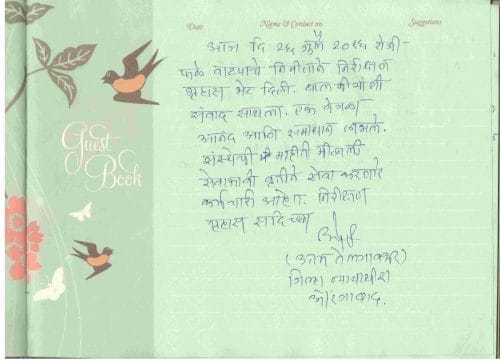 Guest
Book
Date Name & Contact no. Suggestions
आज दि २६ जुलै २०१६ रोजी-
फळे वाटपाचे निमित्ताने निरीक्षण
गृहास भेट दिली. बालकांशी
संवाद साधला. एक वेगळा
आनंद आणि समाधान लाभले.
संस्थेची माहीती मीळाली
सेवाभावी वृत्तीने सेवा करणारे
कर्मचारी आहेत. निरीक्षण
गृहास सदिच्छा
(उत्तम तेलगावकर)
जिल्हा न्यायाधीश
औरंगाबाद.